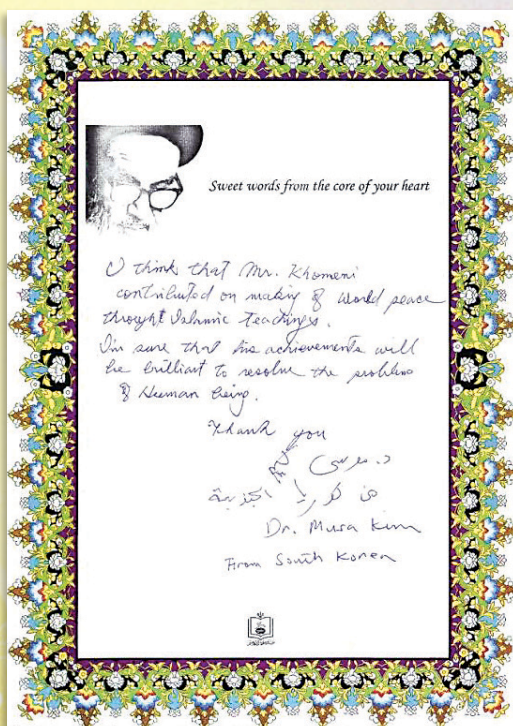 Sweet words from the core of your heart
I think that Mr. Khomeni
contributed on making of world peace
throught Islamic Teachings.
I'm sure that his achievements will
be brilliant to resolve the problem
of Human being.
Thank you
د. موسى
من كوريا الجنوبية
Dr. Musa Kim
From South Korea